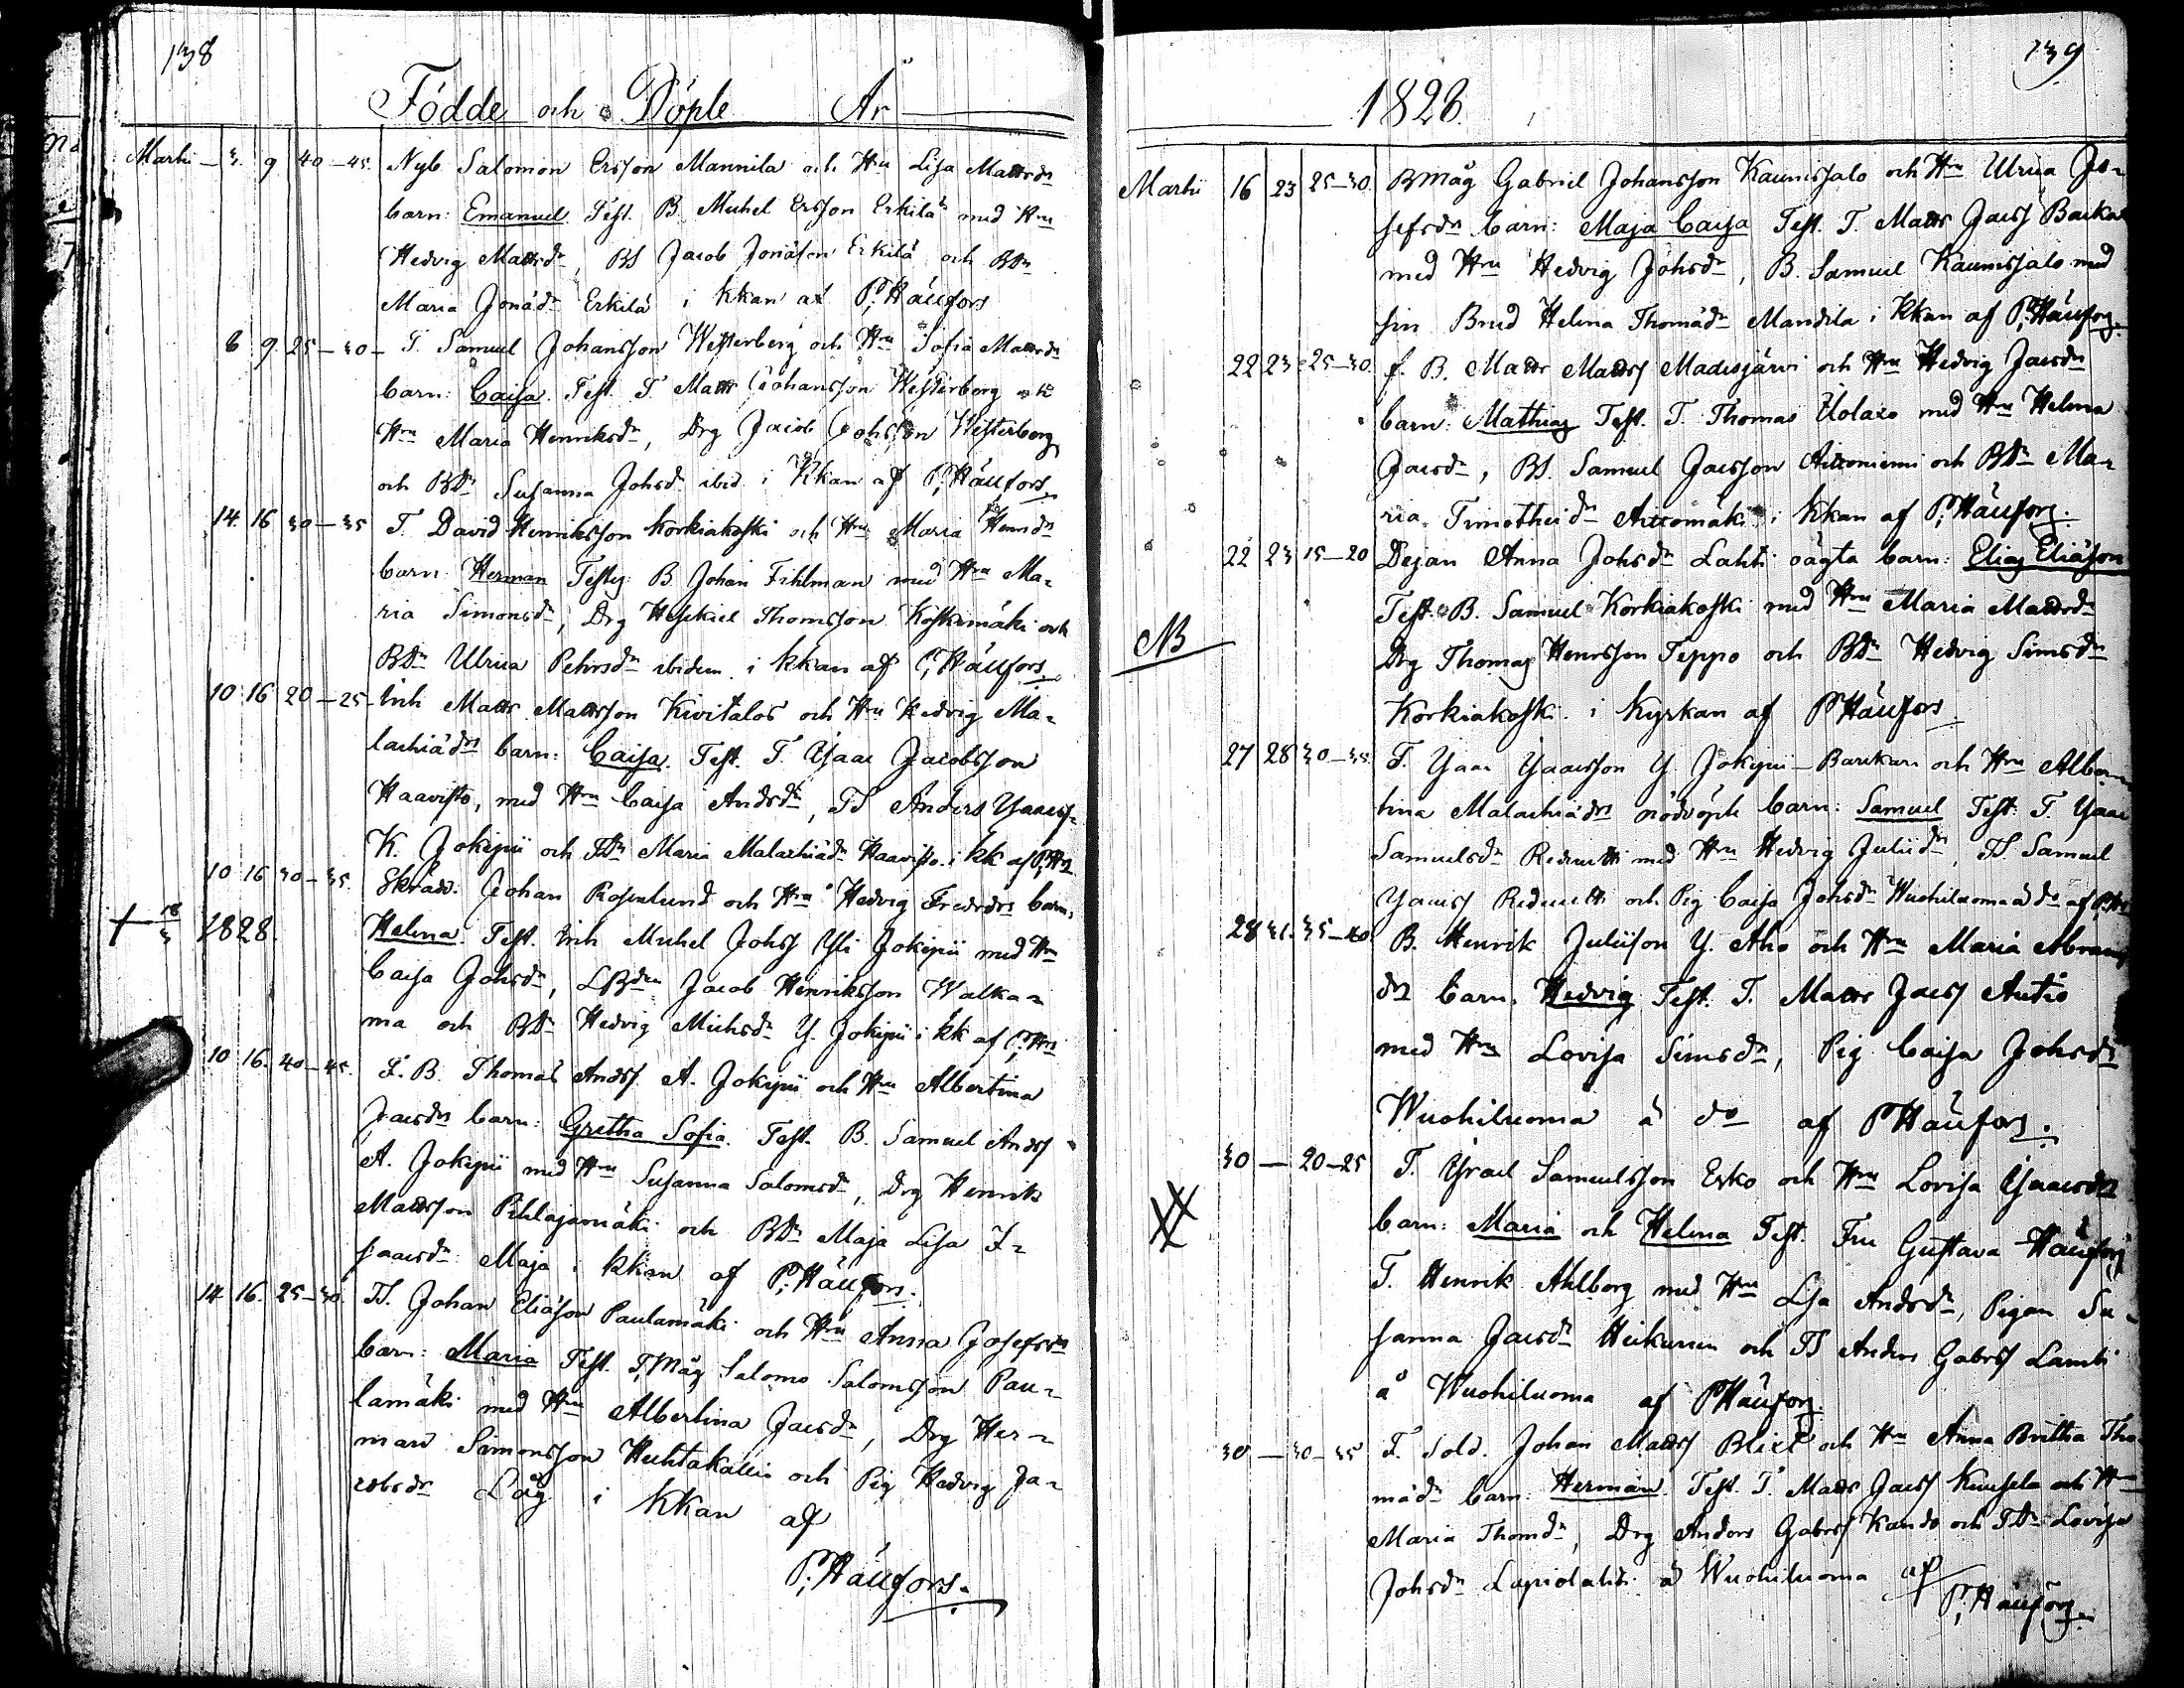 138
Födde och Döpte År
Martii 3. 9 40-45. Nyb Salomon Ersson Mannila och Hru Lisa Mattsdr
barn: Emanuel. Test. B. Michel Ersson Erkilä med Hru
Hedvig Mattsdr, BS Jacob Jonäson Erkilä och BDr
Maria Jonädr Erkilä i kkan af P. Häufors
6 9 25-30 T. Samuel Johansson Westerberg och Hru Sofia Mattsdr
barn: Caisa. Test. T Matts Johansson Westerberg och
Hru Maria Henriksdr, Drg Jacob Johsson Westerberg
och BDr Susanna Johsdr ibid. i Kkan af P. Häufors
14. 16 30-35 T. David Henriksson Korkiakoski och Hru Maria Henrdr
barn: Herman Testes: B Johan Fihlman med Hru Ma=
ria Simonsdr, Drg Heskiel Thomsson Koskimäki och
BDr Ulrica Pehrsdr ibidem i kkan af P. Häufors.
10 16 20-25 Inh Matts Mattsson Kivitalos och Hru Hedvig Ma=
lachiädrs barn: Caisa. Test. T. Ysaac Jacobsson
Haavisto, med Hru Caisa Andsdr, TS Anders Ysaacs=
K. Jokipii och TDr Maria Malachiädr Haavisto i kk af P. Hrs
10 16 30-35. Skräd. Johan Rosenlund och Hru Hedvig Fredrdrs barn:
+ 18/3 1828. Helena. Test. Inh Michel Johss Yli Jokipii med Hru
Caisa Johsdr, LBdrn Jacob Henriksson Walka=
ma och BDr Hedvig Michsdr Y. Jokipii i kk af P. Hrs
10 16. 40-45. F. B. Thomas Andss. A. Jokipii och Hru Albertina
Jacsdrs barn: Gretha Sofia. Test. B. Samuel Andss
A. Jokipii med Hru Susanna Salomsdr, Drg Henrik
Mattsson Pihlajamäki och BDr Maja Lisa I=
saacsdr Maja i kkan af P. Häufors.
14. 16. 25-30. TS. Johan Eliäson Paulamäki och Hru Anna Josefsdr
barn: Maria Test. T, Måg Salomo Salomsson Pau=
lamäki med Hru Albertina Jacsdr, Drg Her=
man Simonsson Huhtakallio och Pig Hedvig Ja=
cobsdr Låg i Kkan af
P. Häufors.
139
1828.
Martii 16 23 25-30. BMåg Gabriel Johansson Kaunissalo och Hru Ulrica Jo=
sefsdrs barn: Maja Caisa Test. T. Matts Jacss Backa
med Hru Hedvig Johsdr, B. Samuel Kaunissalo med
sin Brud Helena Thomädr Mandila i kkan af P. Häufors.
22 23 25-30. f. B. Matts Mattss Madesjärvi och Hru Hedvig Jacsdrs
barn: Mathias Test. T. Thomas Uolaxo med Hru Helena
Jacsdr, BS. Samuel Jacsson Aittoniemi och BDr Ma=
ria Timotheidr Aittomäki i kkan af P. Häufors.
22 23 15-20 Dejan Anna Johsdr Lahti oägta barn: Elias Eliäson
NB Test. B. Samuel Korkiakoski med Hru Maria Mattsdr
Drg Thomas Henrsson Teppo och BDr Hedvig Simsdr
Korkiakoski. i Kyrkan af P Häufors
27 28 30-35. T. Ysaac Ysaacsson Y. Jokipii-Barekars och Hru Alber=
tina Malachiädrs nöddöpte barn: Samuel Test: T. Ysaac
Samuelsdr Reduutti med Hru Hedvig Juliidr, TS. Samuel
Ysaacss Reduutti och Pig Caisa Johsdr Wuohiluoma å do af PHrs
28 31. 35-40. B. Henrik Juliison Y. Aho och Hru Maria Abrams
drs barn. Hedvig Test. T. Matts Jacss Autio
med Hru Lovisa Simsdr, Pig Caisa Johsdr
Wuohiluoma å do af P Häufors.
30 — 20-25 T. Ysrael Samuelsson Esko och Hru Lovisa Ysaacsdrs
barn: Maria och Helena Test. Fru Gustava Häufors
T. Henrik Ahlborg med Hru Lisa Andsdr, Pigan Su=
sanna Jacsdr Heikurien och TS Anders Gabrss Lambi
å Wuohiluoma af P Häufors.
30 — 30-35 F. Sold. Johan Mattss Blixt och Hru Anna Britha Tho=
mädr barn: Herman. Test. T. Matts Jacss Knuussla och Hru
Maria Thomdr, Drg Anders Gabrss Kando och TDr Lovisa
Johsdr Lapiolahti å Wuohiluoma af
P. Häufors.